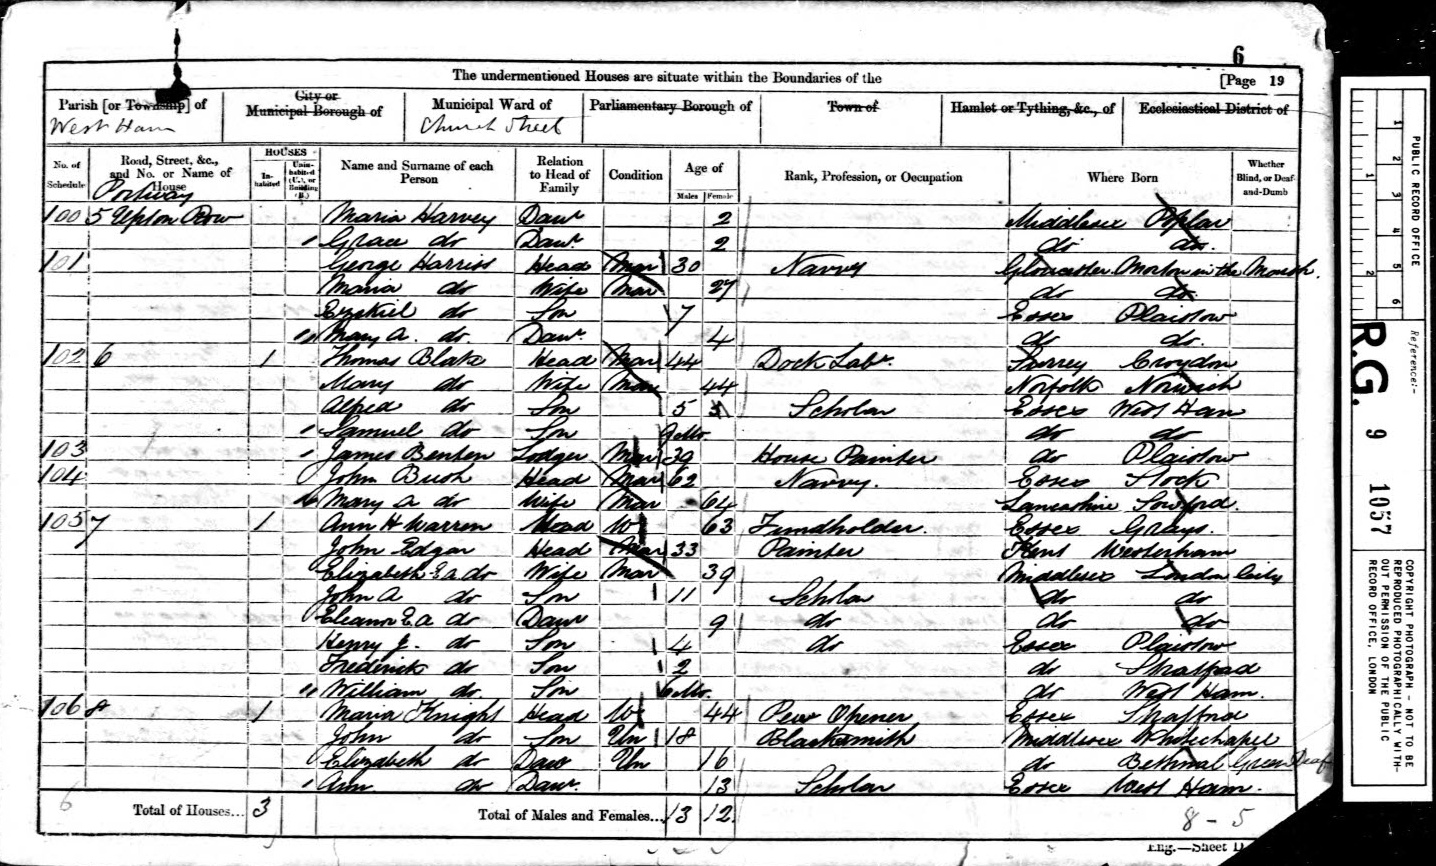 6
The undermentioned Houses are situate within the Boundaries of the [Page 19
Parish [or Township] of City or Municipal Borough of Municipal Ward of Parliamentary Borough of Town of Hamlet or Tything, &c., of Ecclesiastical District of
West Ham Church Street
No. of Schedule Road, Street, &c., and No. or Name of House HOUSES Inhabited Uninhabited (U.), or Building (B.) Name and Surname of each Person Relation to Head of Family Condition Age of Males Females Rank, Profession, or Occupation Where Born Whether Blind, or Deaf-and-Dumb
Portway
100 5 Upton Row Maria Harvey Daur 2 Middlesex Poplar
Grace do Daur 2 do do.
101 George Harriss Head Mar 30 Navvy Gloucester Morton in the Marsh.
Maria do Wife Mar 27 do do
Ezekiel do Son 7 Essex Plaistow
Mary A. do Daur 4 do do.
102 6 1 Thomas Blake Head Mar 44 Dock Labr. Surrey Croydon
Mary do Wife Mar 44 Norfolk Norwich
Alfred do Son 5 Scholar Essex West Ham
Samuel do Son 9 Mo. do do
103 James Benten Lodger Mar 39 House Painter do Plaistow
104 John Bush Head Mar 62 Navvy. Essex Stock
Mary A do Wife Mar 64 Lancashire
105 7 1 Ann H Warren Head W 63 Fundholder. Essex Grays.
John Edgar Head Mar 33 Painter Kent Westerham
Elizabeth E A do Wife Mar 39 Middlesex London City
John A do Son 11 Scholar do do
Eleanor E A do Daur 9 do do do
Henry J. do Son 4 do Essex Plaistow
Frederick do Son 2 do Stratford
William do. Son 6 Mo. do West Ham.
106 8 1 Maria Knight Head W 44 Pew Opener Essex Stratford
John do Son Un 18 Blacksmith Middlesex Whitechapel
Elizabeth do Daur Un 16 do Bethnal Green Deaf
Ann do Daur. 13 Scholar Essex West Ham.
6 Total of Houses... 3 Total of Males and Females... 13 12.
8 - 5
Eng.—Sheet D
PUBLIC RECORD OFFICE
1 2 3 4 5 6
1 2
Reference:-
R.G. 9 1057
COPYRIGHT PHOTOGRAPH - NOT TO BE
REPRODUCED PHOTOGRAPHICALLY WITH-
OUT PERMISSION OF THE PUBLIC
RECORD OFFICE, LONDON